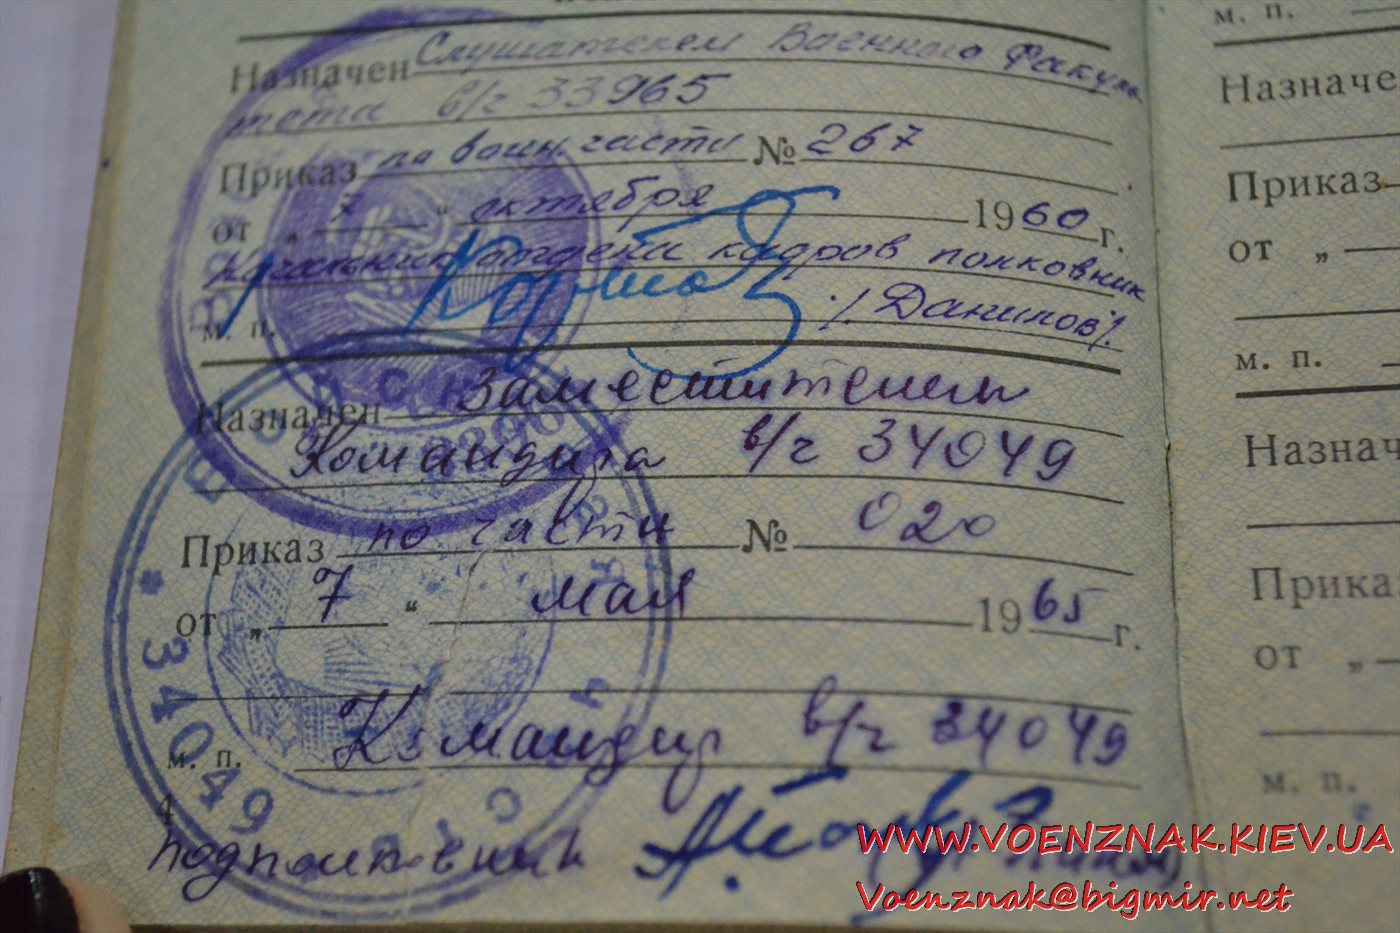 Назначен Слушателем Военного Факуль
тета в/ч 33965
Приказ по воин. части № 267
от „ 7 “ октября 1960 г.
начальник отдела кадров полковник
м. п. /Данилов/.
Назначен Заместителем
Командира в/ч 34049
Приказ по части № 020
от „ 7 “ мая 1965 г.
Командир в/ч 34049
м. п.
4
подполковник
* 34049
м. п.
Назначе
Приказ
от „
м. п.
Назнач
Прика
от „
м. п.
WWW.VOENZNAK.KIEV.UA
Voenznak@bigmir.net